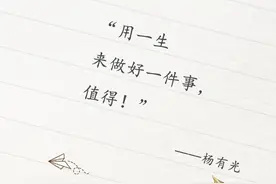 “用一生
来做好一件事，
值得！”
——杨有光